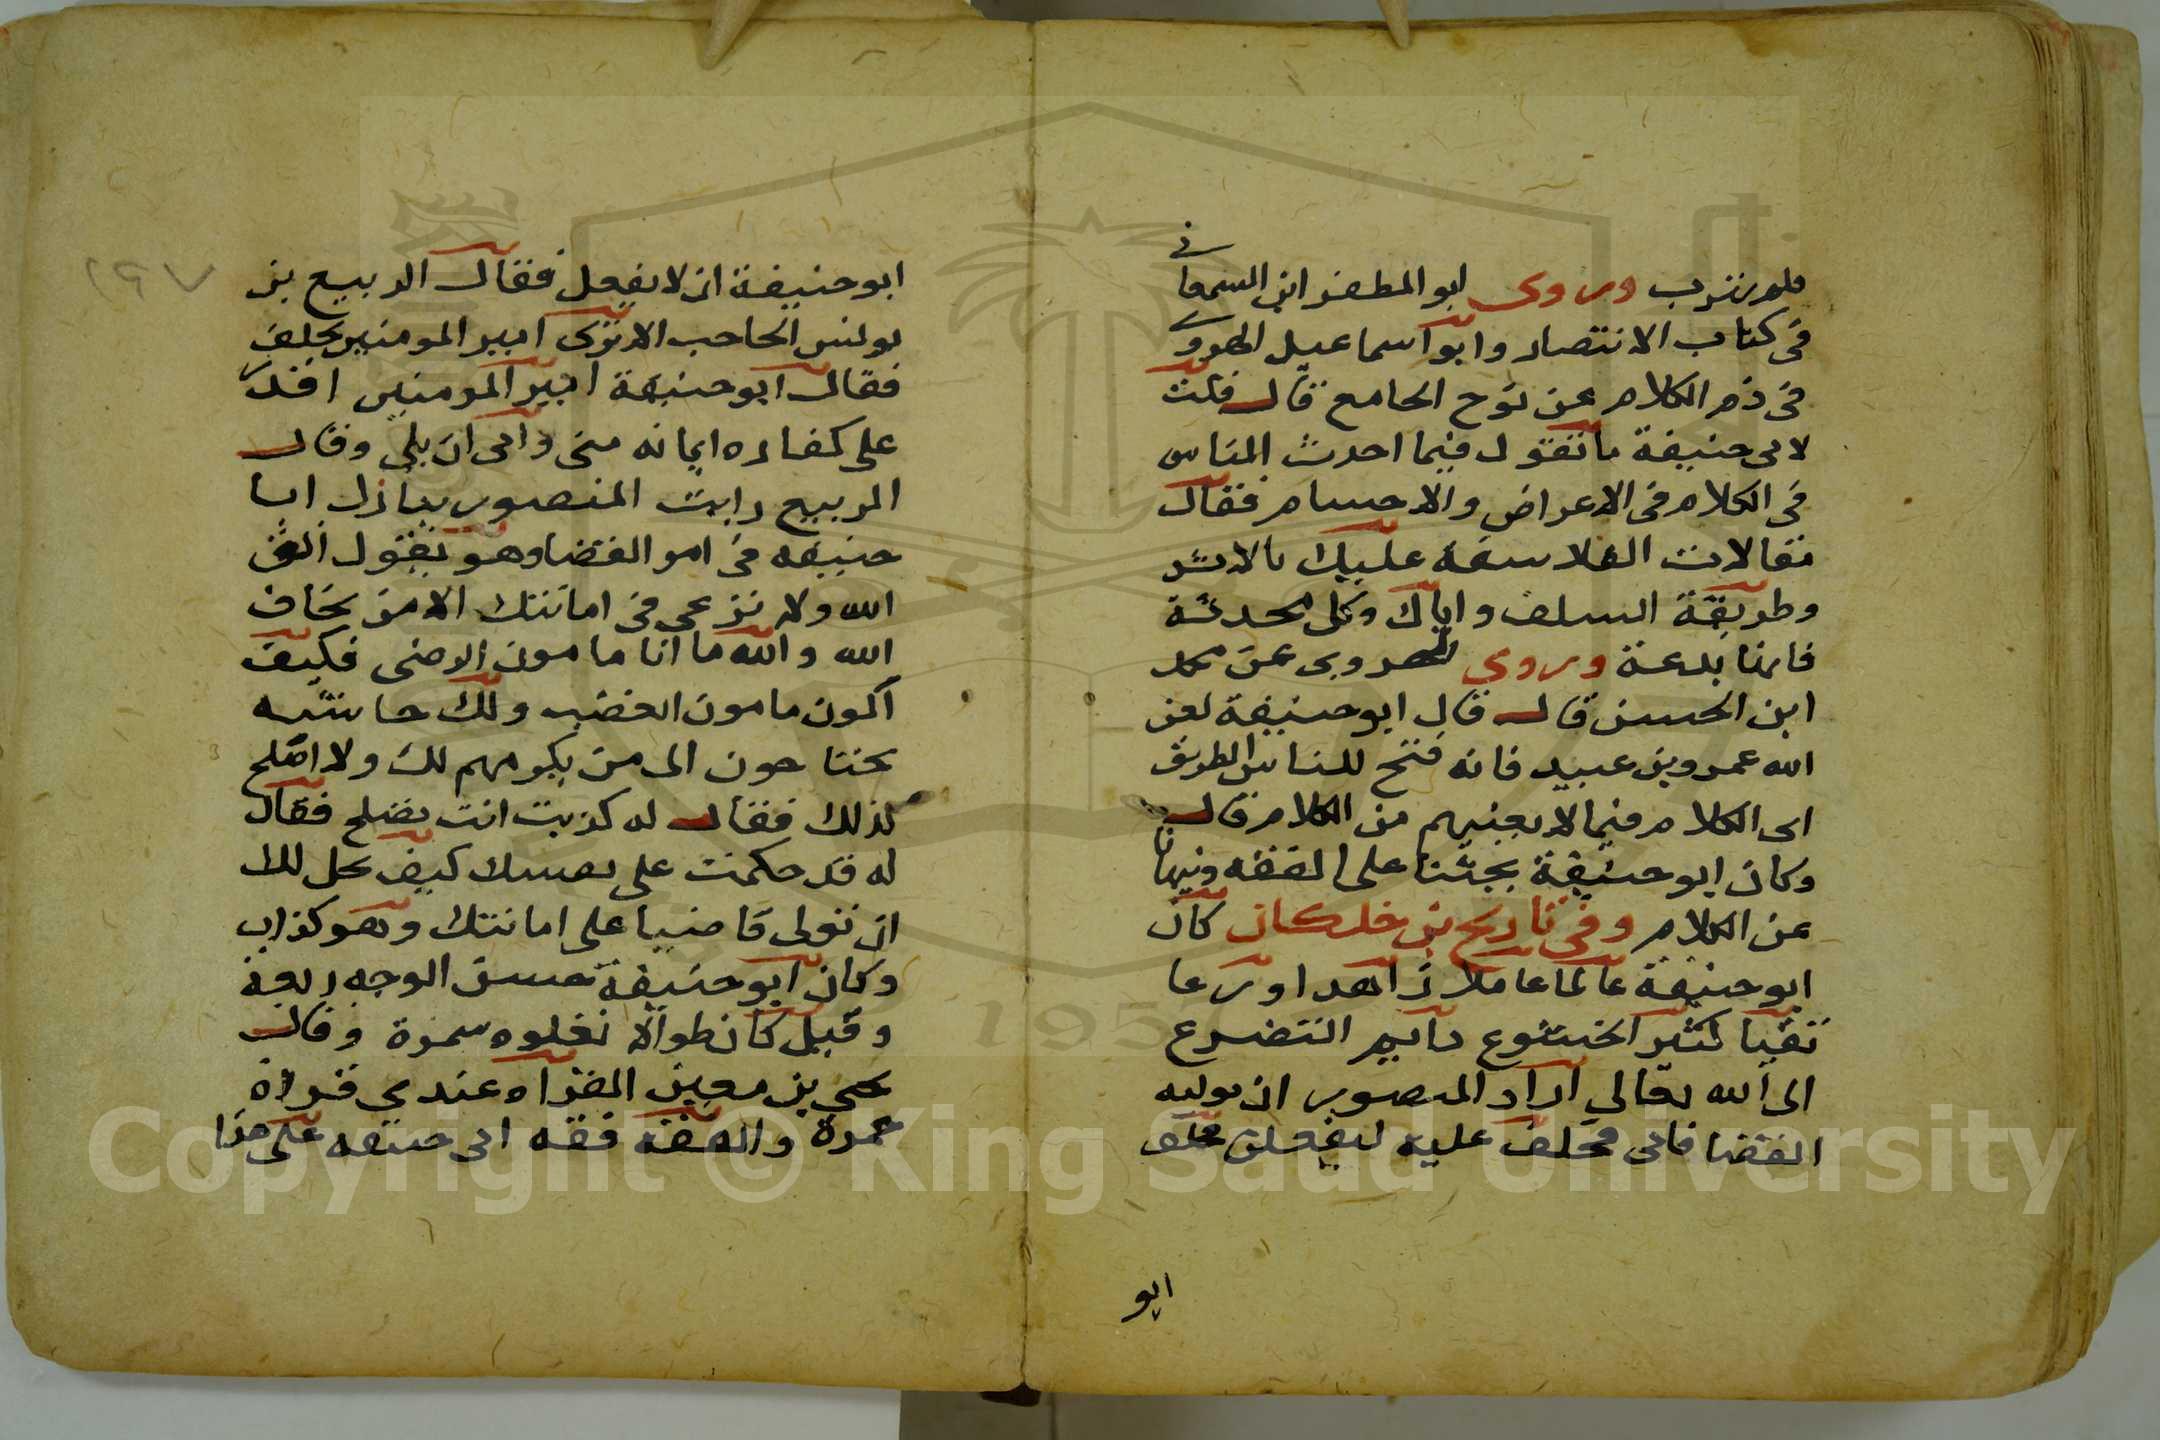 فلم نشرب وروى ابو المظفر ابن السمعانى
فى كتاب الانتصار وابو اسماعيل الهروى
فى ذم الكلام عن نوح الجامع قال قلت
لابى حنيفة ما تقول فيما احدث الناس
فى الكلام فى الاعراض والاجسام فقال
مقالات الفلاسفة عليك بالاثر
وطريقة السلف واياك وكل محدثة
فانها بدعة وروى الهروى عن محمد
ابن الحسن قال قال ابو حنيفة لعن
الله عمرو بن عبيد فانه فتح للناس الطريق
الى الكلام فيما لا يعنيهم من الكلام قال
وكان ابو حنيفة يحثنا على الفقه وينهانا
عن الكلام وفى تاريخ بن خلكان كان
ابو حنيفة عالما عاملا زاهدا ورعا
تقيا كثير الخشوع دايم التضرع
الى الله تعالى اراد المنصور ان يوليه
القضا فابى فحلف عليه ليفعلن فحلف
ابو
ابو حنيفة ان لا يفعل فقال الربيع بن
يونس الحاجب الا ترى امير المومنين يحلف
فقال ابو حنيفة امير المومنين اقدر
على كفاره ايمانه منى وابى ان يلي وقال
الربيع رايت المنصور ينازل ابا
حنيفه فى امر القضا وهو يقول اتق
الله ولا ترعى فى امانتك الا من يخاف
الله والله ما انا مامون الرضى فكيف
اكون مامون الغضب ولك حاشيه
يحتاجون الى من يكرمهم لك ولا اصلح
لذلك فقال له كذبت انت تصلح فقال
له قد حكمت على نفسك كيف يحل لك
ان تولى قاضيا على امانتك وهو كذاب
وكان ابو حنيفة حسن الوجه ربعة
وقيل كان طوالا تعلوه سمرة وقال
يحيى بن معين القراه عندي قراة
حمزة والفقه فقه ابى حنيفه على هذا
١٩٧
Copyright © King Saud University
1957